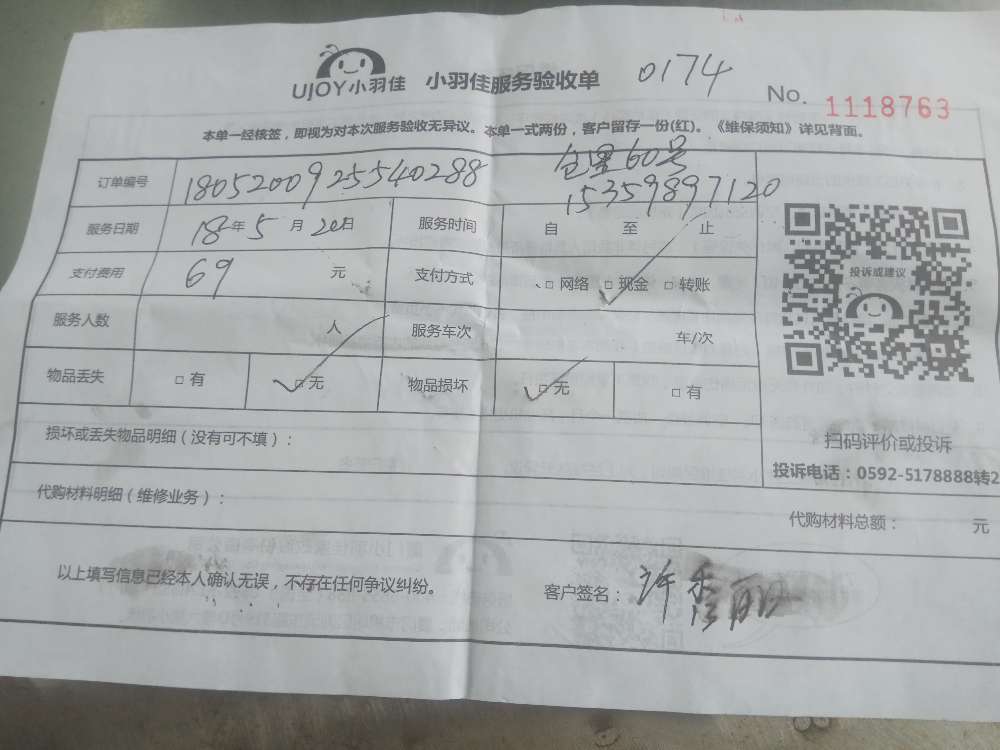 UJOY小羽佳 小羽佳服务验收单 0174 No. 1118763
本单一经核签，即视为对本次服务验收无异议。本单一式两份，客户留存一份(红)。《维保须知》详见背面。
60号
订单编号 180520092554028​8 15359897120
服务日期 18年5月20日 服务时间 自 至 止
支付费用 69 元 支付方式 □网络 □现金 □转账
投诉或建议
服务人数 人 服务车次 车/次
物品丢失 □有 □无 物品损坏 □无 □有
损坏或丢失物品明细（没有可不填）：
扫码评价或投诉
投诉电话：0592-5178888转2
代购材料明细（维修业务）：
代购材料总额： 元
以上填写信息已经本人确认无误，不存在任何争议纠纷。 客户签名：许秀丽